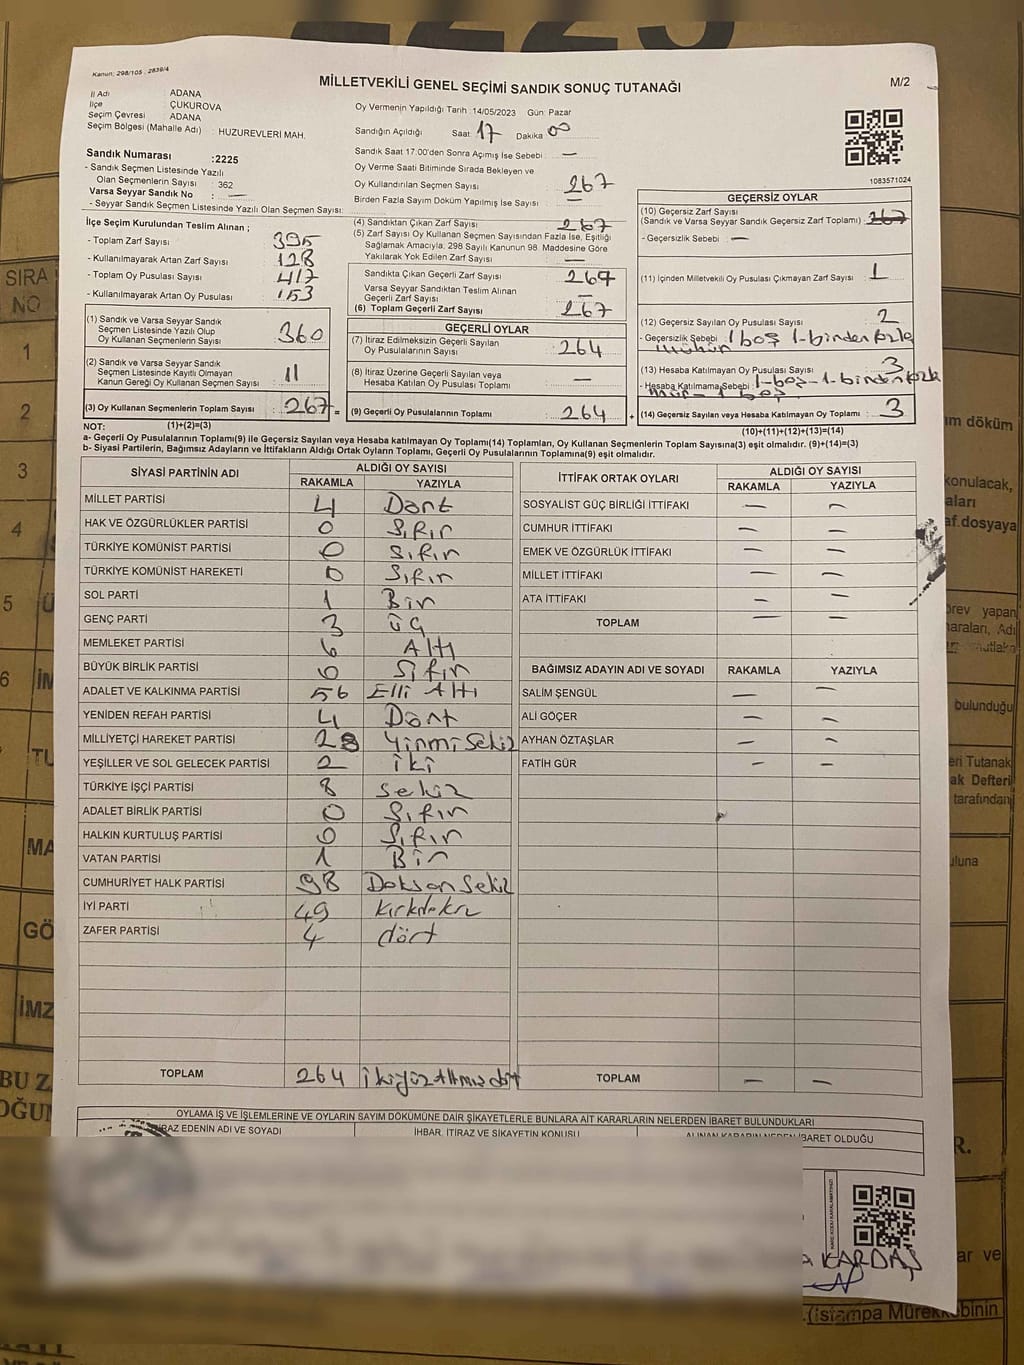 2225
Kanun: 298/105 , 2839/4
MİLLETVEKİLİ GENEL SEÇİMİ SANDIK SONUÇ TUTANAĞI
M/2
İl Adı ADANA
İlçe ÇUKUROVA
Seçim Çevresi ADANA
Seçim Bölgesi (Mahalle Adı) : HUZUREVLERİ MAH.
Oy Vermenin Yapıldığı Tarih :14/05/2023 Gün: Pazar
Sandığın Açıldığı Saat: 17 Dakika: 00
Sandık Saat 17:00'den Sonra Açımış İse Sebebi : —
Oy Verme Saati Bitiminde Sırada Bekleyen ve
Oy Kullandırılan Seçmen Sayısı 267
Birden Fazla Sayım Döküm Yapılmış İse Sayısı : —
Sandık Numarası :2225
- Sandık Seçmen Listesinde Yazılı
Olan Seçmenlerin Sayısı : 362
Varsa Seyyar Sandık No : —
- Seyyar Sandık Seçmen Listesinde Yazılı Olan Seçmen Sayısı:
1083571024
İlçe Seçim Kurulundan Teslim Alınan ;
- Toplam Zarf Sayısı : 395
- Kullanılmayarak Artan Zarf Sayısı : 128
- Toplam Oy Pusulası Sayısı : 417
- Kullanılmayarak Artan Oy Pusulası : 153
(1) Sandık ve Varsa Seyyar Sandık
Seçmen Listesinde Yazılı Olup
Oy Kullanan Seçmenlerin Sayısı : 360
(2) Sandık ve Varsa Seyyar Sandık
Seçmen Listesinde Kayıtlı Olmayan
Kanun Gereği Oy Kullanan Seçmen Sayısı : 11
(3) Oy Kullanan Seçmenlerin Toplam Sayısı : 267 =
(4) Sandıktan Çıkan Zarf Sayısı : 267
(5) Zarf Sayısı Oy Kullanan Seçmen Sayısından Fazla İse, Eşitliği
Sağlamak Amacıyla, 298 Sayılı Kanunun 98. Maddesine Göre
Yakılarak Yok Edilen Zarf Sayısı : —
Sandıkta Çıkan Geçerli Zarf Sayısı : 267
Varsa Seyyar Sandıktan Teslim Alınan
Geçerli Zarf Sayısı : —
(6) Toplam Geçerli Zarf Sayısı : 267
GEÇERLİ OYLAR
(7) İtiraz Edilmeksizin Geçerli Sayılan
Oy Pusulalarının Sayısı : 264
(8) İtiraz Üzerine Geçerli Sayılan veya
Hesaba Katılan Oy Pusulaları Toplamı : —
(9) Geçerli Oy Pusulalarının Toplamı : 264 +
GEÇERSİZ OYLAR
(10) Geçersiz Zarf Sayısı
(Sandık ve Varsa Seyyar Sandık Geçersiz Zarf Toplamı) : 267
- Geçersizlik Sebebi : —
(11) İçinden Milletvekili Oy Pusulası Çıkmayan Zarf Sayısı : 1
(12) Geçersiz Sayılan Oy Pusulası Sayısı : 2
- Geçersizlik Sebebi : 1 boş 1-binden fazla
mühür
(13) Hesaba Katılmayan Oy Pusulası Sayısı : 3
- Hesaba Katılmama Sebebi : 1-boş-1-binden fazla
mür- 1 boş
(14) Geçersiz Sayılan veya Hesaba Katılmayan Oy Toplamı : 3
(10)+(11)+(12)+(13)=(14)
NOT: (1)+(2)=(3)
a- Geçerli Oy Pusulalarının Toplamı(9) ile Geçersiz Sayılan veya Hesaba katılmayan Oy Toplamı(14) Toplamları, Oy Kullanan Seçmenlerin Toplam Sayısına(3) eşit olmalıdır. (9)+(14)=(3)
b- Siyasi Partilerin, Bağımsız Adayların ve İttifakların Aldığı Ortak Oyların Toplamı, Geçerli Oy Pusulalarının Toplamına(9) eşit olmalıdır.
SİYASİ PARTİNİN ADI ALDIĞI OY SAYISI
RAKAMLA YAZIYLA
MİLLET PARTİSİ 4 Dört
HAK VE ÖZGÜRLÜKLER PARTİSİ 0 Sıfır
TÜRKİYE KOMÜNİST PARTİSİ 0 Sıfır
TÜRKİYE KOMÜNİST HAREKETİ 0 Sıfır
SOL PARTİ 1 Bir
GENÇ PARTİ 3 üç
MEMLEKET PARTİSİ 6 Altı
BÜYÜK BİRLİK PARTİSİ 0 Sıfır
ADALET VE KALKINMA PARTİSİ 56 Elli Altı
YENİDEN REFAH PARTİSİ 4 Dört
MİLLİYETÇİ HAREKET PARTİSİ 28 Yirmi Sekiz
YEŞİLLER VE SOL GELECEK PARTİSİ 2 iki
TÜRKİYE İŞÇİ PARTİSİ 8 Sekiz
ADALET BİRLİK PARTİSİ 0 Sıfır
HALKIN KURTULUŞ PARTİSİ 0 Sıfır
VATAN PARTİSİ 1 Bir
CUMHURİYET HALK PARTİSİ 98 Doksan Sekiz
İYİ PARTİ 49
ZAFER PARTİSİ 4 dört
TOPLAM 264 ikiyüz Altmış dört
İTTİFAK ORTAK OYLARI ALDIĞI OY SAYISI
RAKAMLA YAZIYLA
SOSYALİST GÜÇ BİRLİĞİ İTTİFAKI — —
CUMHUR İTTİFAKI — —
EMEK VE ÖZGÜRLÜK İTTİFAKI — —
MİLLET İTTİFAKI — —
ATA İTTİFAKI — —
TOPLAM — —
BAĞIMSIZ ADAYIN ADI VE SOYADI RAKAMLA YAZIYLA
SALİM ŞENGÜL — —
ALİ GÖÇER — —
AYHAN ÖZTAŞLAR — —
FATİH GÜR — —
TOPLAM — —
OYLAMA İŞ VE İŞLEMLERİNE VE OYLARIN SAYIM DÖKÜMÜNE DAİR ŞİKAYETLERLE BUNLARA AİT KARARLARIN NELERDEN İBARET BULUNDUKLARI
İTİRAZ EDENİN ADI VE SOYADI İHBAR, İTİRAZ VE ŞİKAYETİN KONUSU ALINAN KARARIN NEDEN İBARET OLDUĞU
KARDAŞ
SIRA
NO
1
2
3
4
5
6
İM
TU
MA
GÖ
İMZ
BU Z
OĞUN
ım döküm
konulacak,
aları
af.dosyaya
örev yapan
naraları, Adı
bulunduğu
eri Tutanak
ak Defteri
tarafından
uluna
R.
ar ve
(ıstampa Mürekkebinin